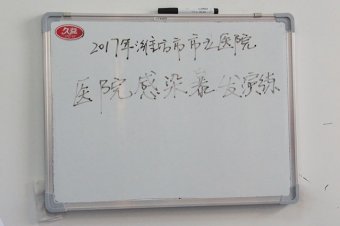 久晟
2017年淮南市市立医院
医院感染暴发演练